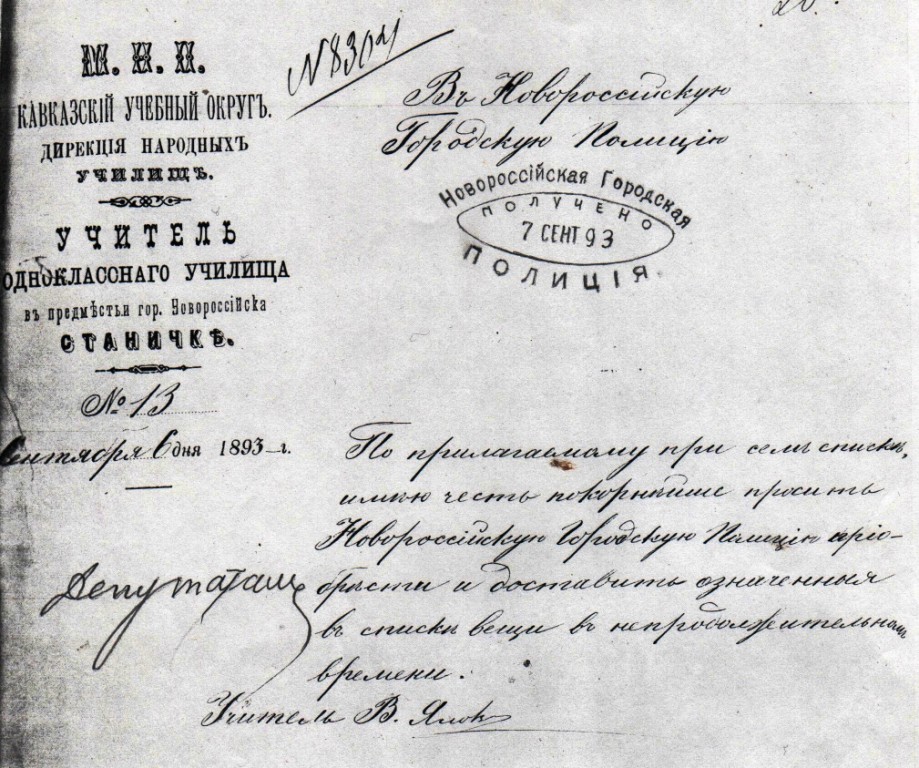 М. Н. П.
КАВКАЗСКІЙ УЧЕБНЫЙ ОКРУГЪ.
ДИРЕКЦІЯ НАРОДНЫХЪ
УЧИЛИЩЪ.
УЧИТЕЛЬ
ОДНОКЛАССНАГО УЧИЛИЩА
въ предмѣстьи гор. Новороссійска
СТАНИЧКѢ.
№ 13
Сентября 6 дня 1893 г.
N 8304
Въ Новороссійскую
Городскую Полицію
Новороссійская Городская
ПОЛУЧЕНО
7 СЕНТ 93
ПОЛИЦІЯ
По прилагаемому при семъ списку,
имѣю честь покорнѣйше просить
Новороссійскую Городскую Полицію пріо-
брѣсти и доставить означенныя
въ спискѣ вещи въ непродолжительномъ
времени.
Учитель В.
Депутатамъ